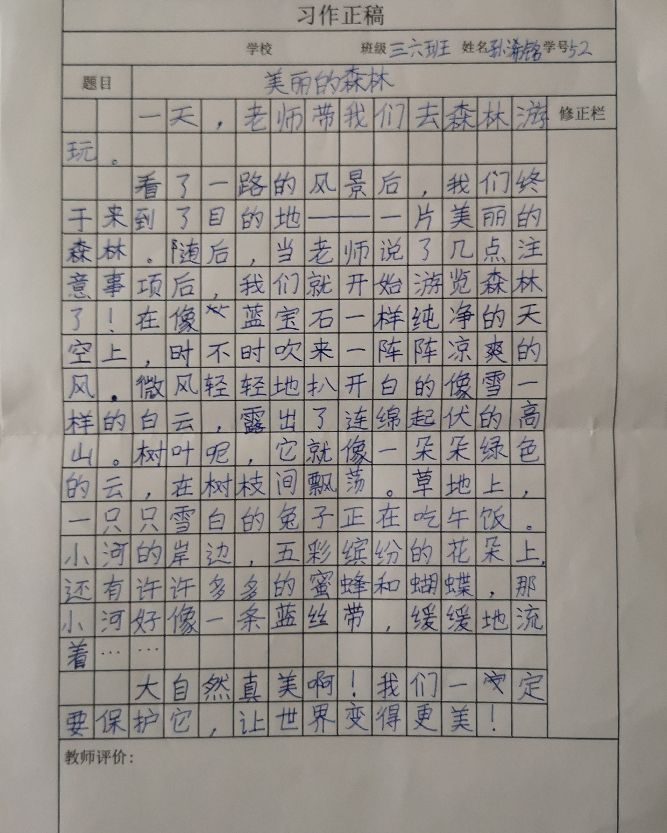 习作正稿
学校 班级 三六班 姓名 孙浠铭 学号 52
题目 美丽的森林
一天，老师带我们去森林游 修正栏
玩。
看了一路的风景后，我们终
于来到了目的地——一片美丽的
森林。随后，当老师说了几点注
意事项后，我们就开始游览森林
了！在像蓝宝石一样纯净的天
空上，时不时吹来一阵阵凉爽的
风。微风轻轻地扒开白的像雪一
样的白云，露出了连绵起伏的高
山。树叶呢，它就像一朵朵绿色
的云，在树枝间飘荡。草地上，
一只只雪白的兔子正在吃午饭。
小河的岸边，五彩缤纷的花朵上，
还有许许多多的蜜蜂和蝴蝶，那
小河好像一条蓝丝带，缓缓地流
着……
大自然真美啊！我们一定
要保护它，让世界变得更美！
教师评价：